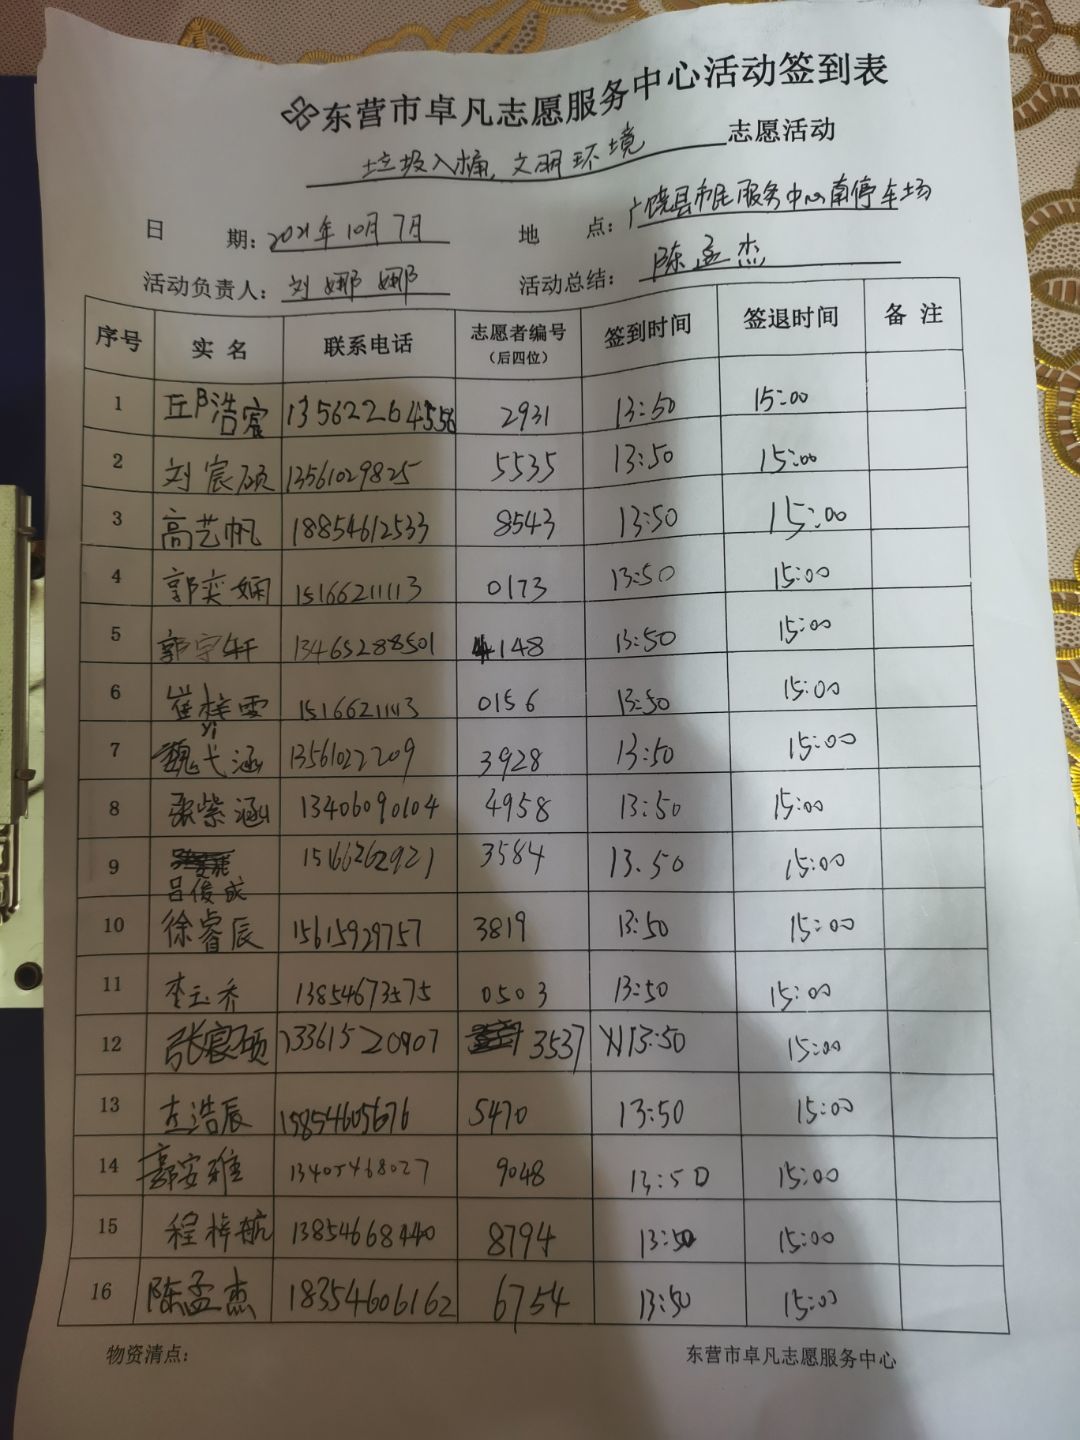 东营市卓凡志愿服务中心活动签到表
垃圾入桶,文明环境 志愿活动
日 期: 2021年10月7月 地 点: 广饶县市民服务中心南停车场
活动负责人: 刘娜娜 活动总结: 陈孟杰
序号 实名 联系电话 志愿者编号(后四位) 签到时间 签退时间 备注
1 邱浩宸 13562264556 2931 13:50 15:00
2 刘宸硕 13561029825 5535 13:50 15:00
3 高艺帆 18854612533 8543 13:50 15:00
4 郭奕娴 15166211113 0173 13:50 15:00
5 郭宇轩 13465288501 4148 13:50 15:00
6 崔梓雯 15166211113 0156 13:50 15:00
7 魏弋涵 13561022209 3928 13:50 15:00
8 张紫涵 13406090104 4958 13:50 15:00
9 吕俊成 15166262921 3584 13:50 15:00
10 徐睿辰 15615929757 3819 13:50 15:00
11 李玉乔 13854673575 0503 13:50 15:00
12 张宸硕 13361520907 3537 13:50 15:00
13 左浩辰 15854605676 5470 13:50 15:00
14 郭安雅 13405468027 9048 13:50 15:00
15 程梓航 13854668440 8794 13:50 15:00
16 陈孟杰 18354606162 6754 13:50 15:00
物资清点: 东营市卓凡志愿服务中心